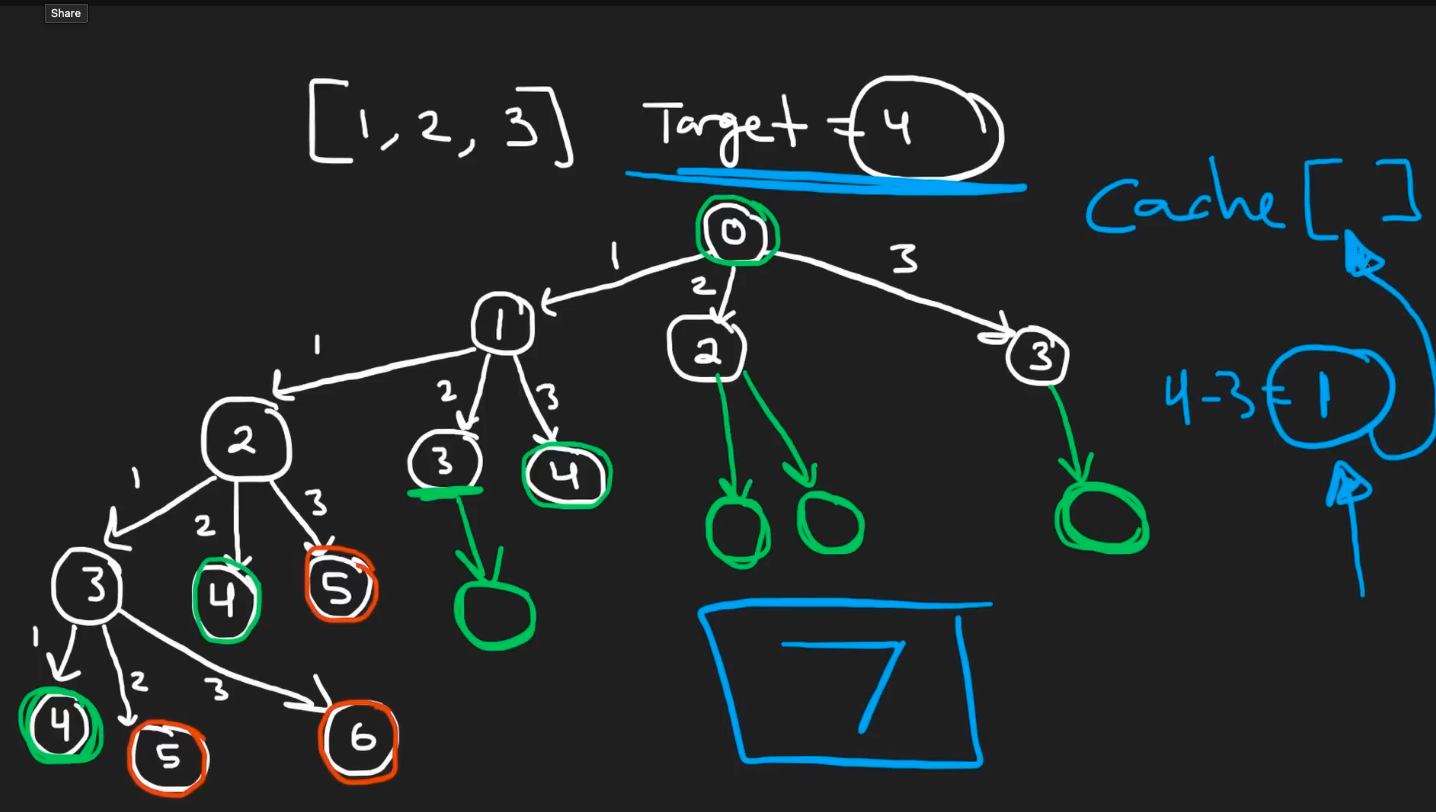 Share
[1, 2, 3] Target = 4
Cache [ ]
0
1 2 3
1 2 3
4-3=1
1 2 3
2 3 4
1 2 3
3 4 5
1 2 3
4 5 6
7